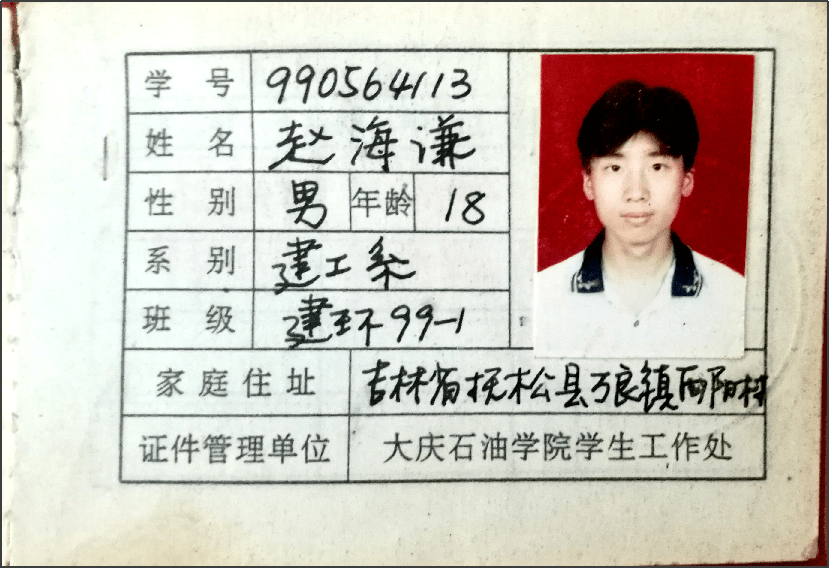 学 号 990564113
姓 名 赵海谦
性 别 男 年龄 18
系 别 建工系
班 级 建环99-1
家庭住址 吉林省抚松县万良镇西阳村
证件管理单位 大庆石油学院学生工作处